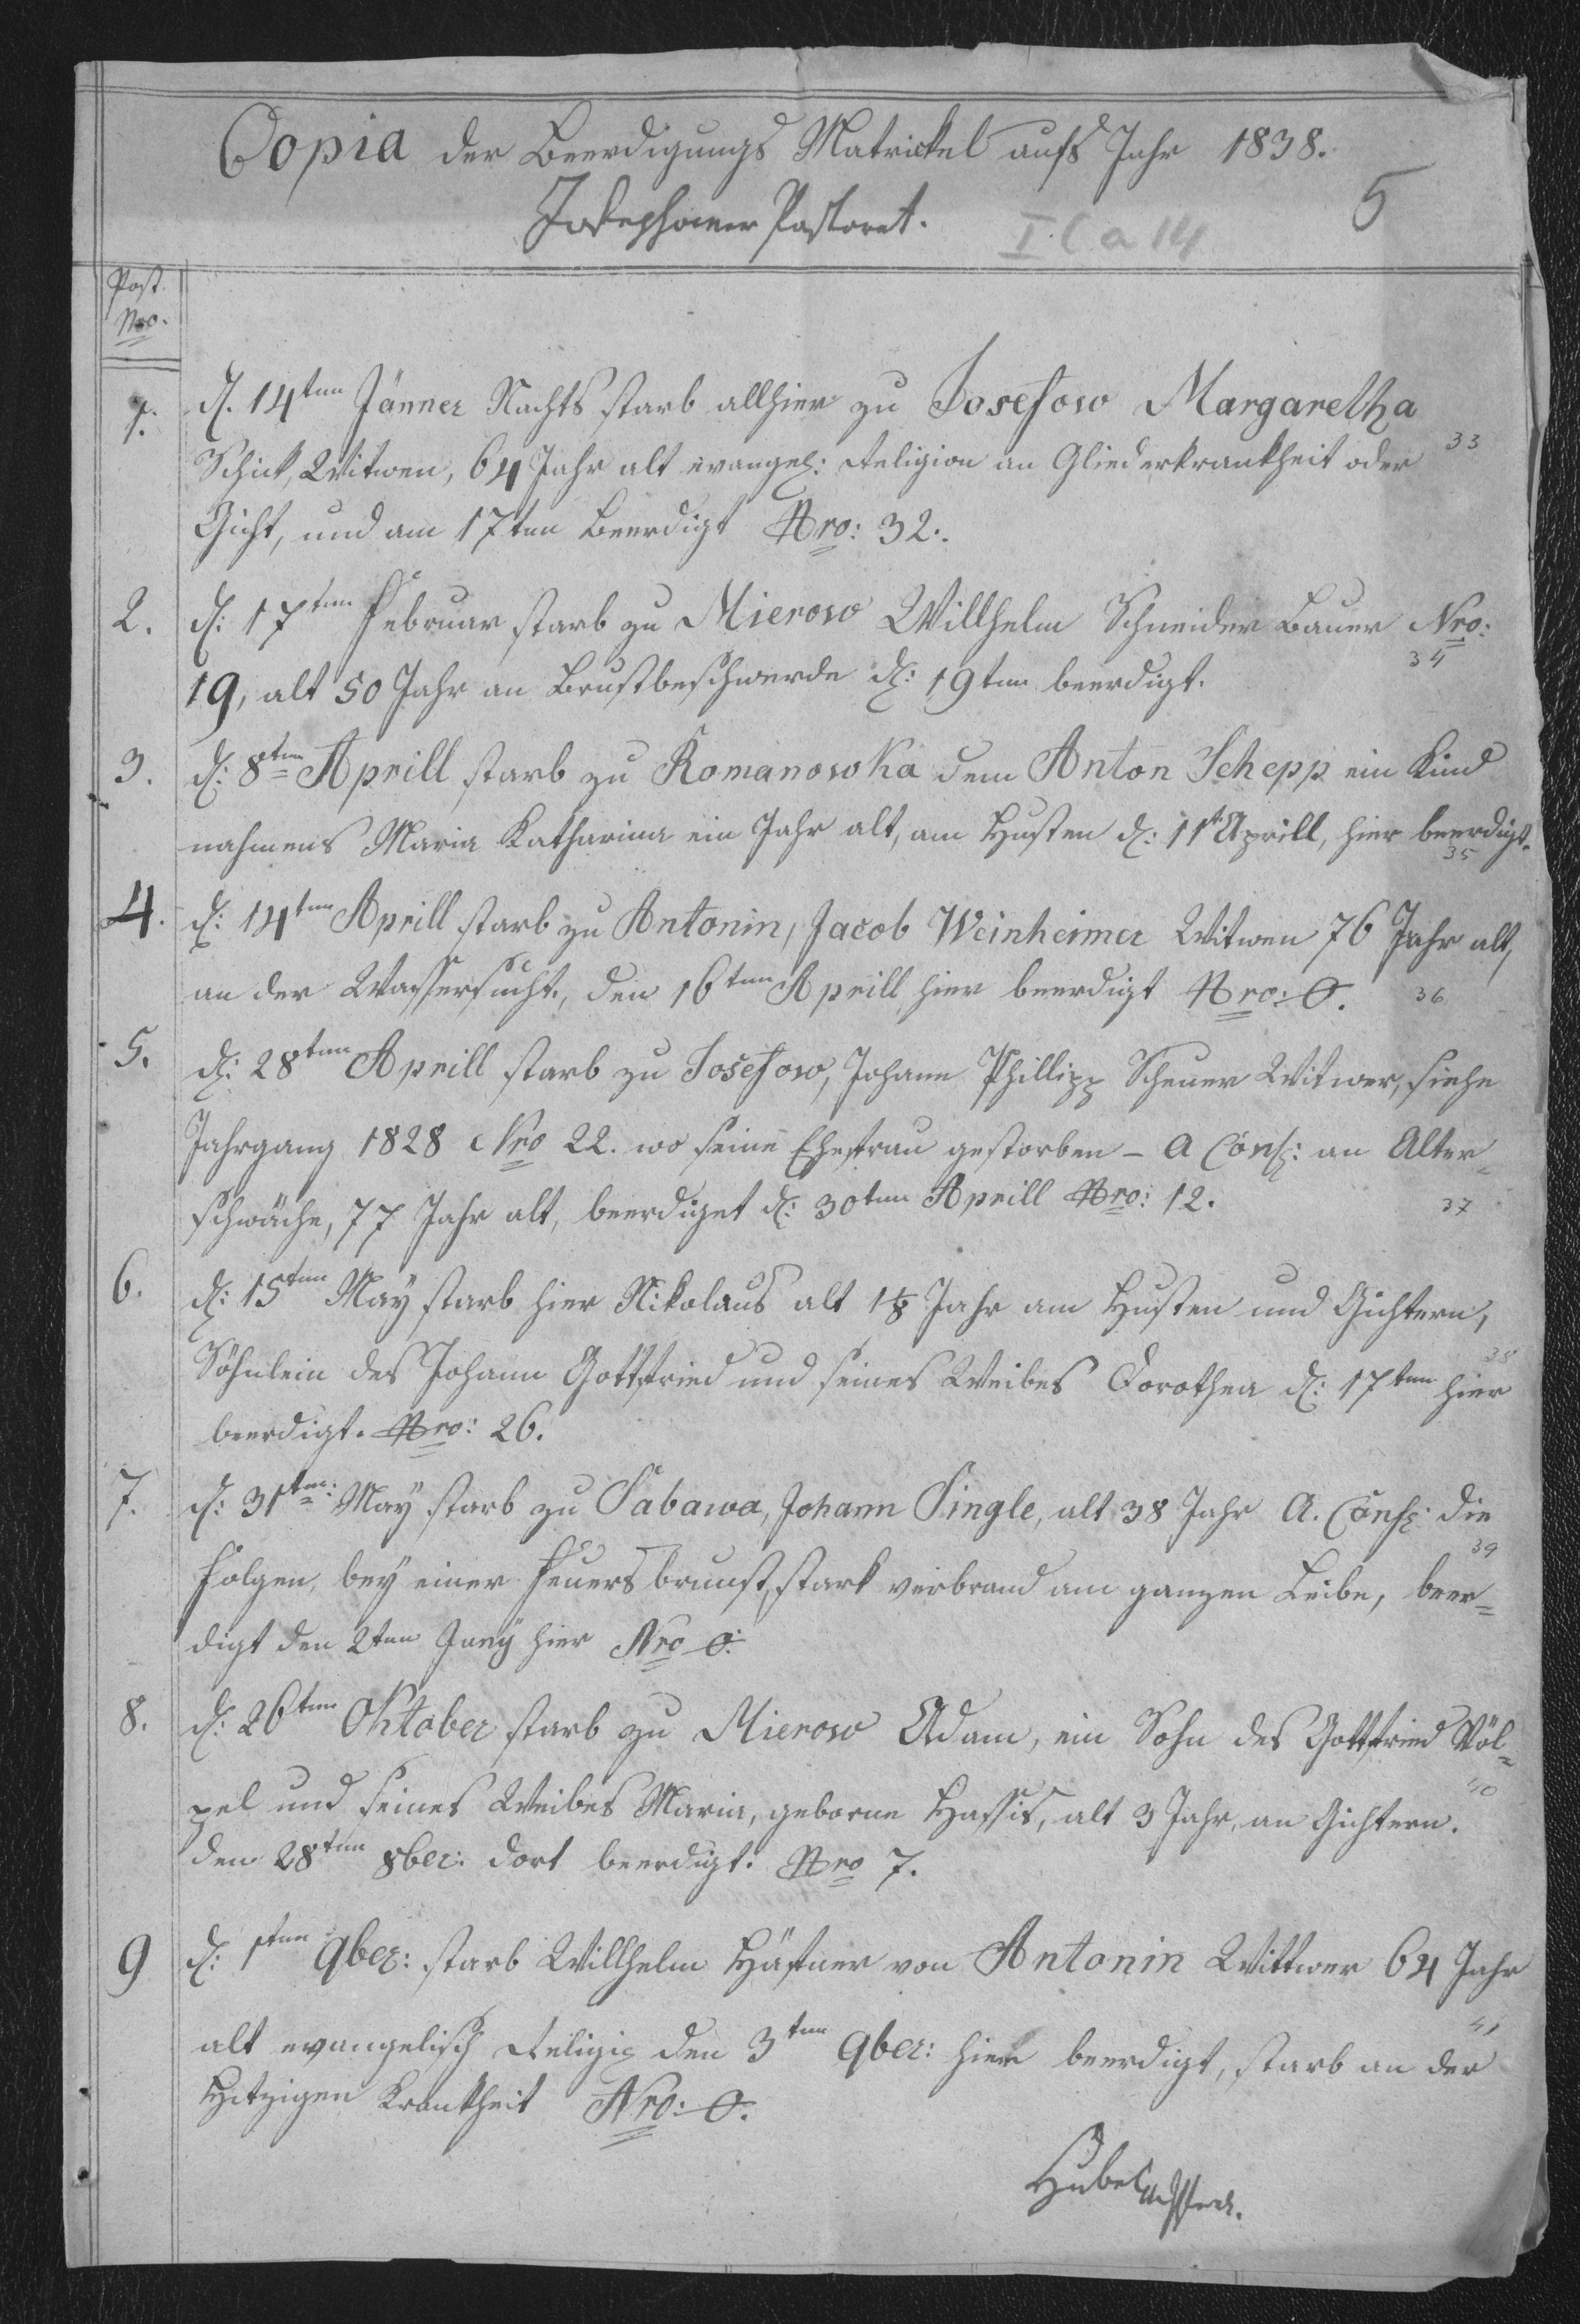 Copia der Beerdigungs Matrickel aufs Jahr 1838.
5
Josephower Pastorat.
I C a 14
Post
Nro.
1. d. 14ten Jänner Nachts starb allhier zu Josefow Margaretha
33
Schick, Witwen, 64 Jahr alt evangel: Religion an Gliederkrankheit oder
Gicht, und am 17ten beerdigt Nro: 32.
2. d: 17ten Februar starb zu Mierow Willhelm Schneider Bauer Nro:
34
19, alt 50 Jahr an Brustbeschwerde d: 19ten beerdigt.
3. d: 8ten Aprill starb zu Romanowka dem Anton Schepp ein Kind
nahmens Maria Katharina ein Jahr alt, am Husten d: 11t Aprill, hier beerdigt.
35
4. d: 14ten Aprill starb zu Antonin, Jacob Weinheimer Witwen 76 Jahr alt,
an der Wassersucht, den 16ten Aprill hier beerdigt Nro: 0. 36
5. d: 28ten Aprill starb zu Josefow, Johann Phillipp Scheuer Witwer, siehe
Jahrgang 1828 Nro 22. wo seine Ehefrau gestorben – A Conf: an Alter=
schwäche, 77 Jahr alt, beerdiget d: 30ten Aprill Nro: 12.
37
6. d: 15ten May starb hier Nikolaus alt 1⅛ Jahr am Husten und Gichtern,
38
Söhnlein des Johann Gottfried und seines Weibes Dorothea d: 17ten hier
beerdigt. Nro: 26.
7. d: 31ten: May starb zu Sabawa, Johann Single, alt 38 Jahr A. Conf: die
39
Folgen, bey einer Feuersbrunst, stark verbrand am ganzen Leibe, beer=
digt den 2ten Juny hier Nro 0:
8. d: 26ten Oktober starb zu Mierow Adam, ein Sohn des Gottfried Völ=
40
pel und seines Weibes Maria, geborne Hassis, alt 3 Jahr, an Gichtern.
den 28ten 8ber: dort beerdigt. Nro 7.
9 d: 1ten 9ber: starb Willhelm Häfner von Antonin Wittwer 64 Jahr
41
alt evangelisch Religio den 3ten 9ber: hier beerdigt, starb an der
Hitzigen Krankheit Nro: 0.
Hubel